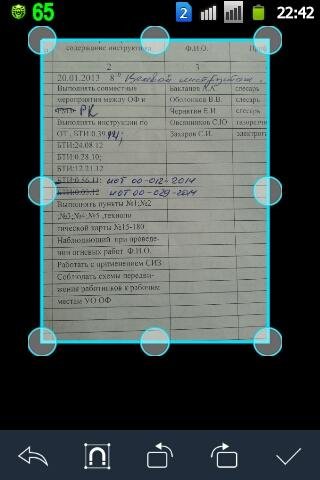 65 2 22:42
содержание инструктажа Ф.И.О. Проф
2 3
20.01.2013 8 Целевой инструктаж.
Выполнять совместные Бактанов К.К слесарь
мероприятия между ОФ и Оболонков В.В. слесарь
РК Чернягин Е.И слесарь
Выполнять инструкции по Овсянников С.Ю газорезч
ОТ , БТИ:0.39. Захаров С.И. электрога
БТИ:24.08.12
БТИ:0.28.10;
БТИ:12.21.12
БТИ:0.56.11; ИОТ 00-012-2014
БТИ:0.03.12 ИОТ 00-029-2014
Выполнять пункты №1;№2
,№3;№4;№5 ,техноло
гической карты №15-180
Наблюдающий при проведе-
нии огневых работ Ф.И.О.
Работать с применением СИЗ
Соблюдать схемы передви-
жения работников к рабочим
местам УО ОФ